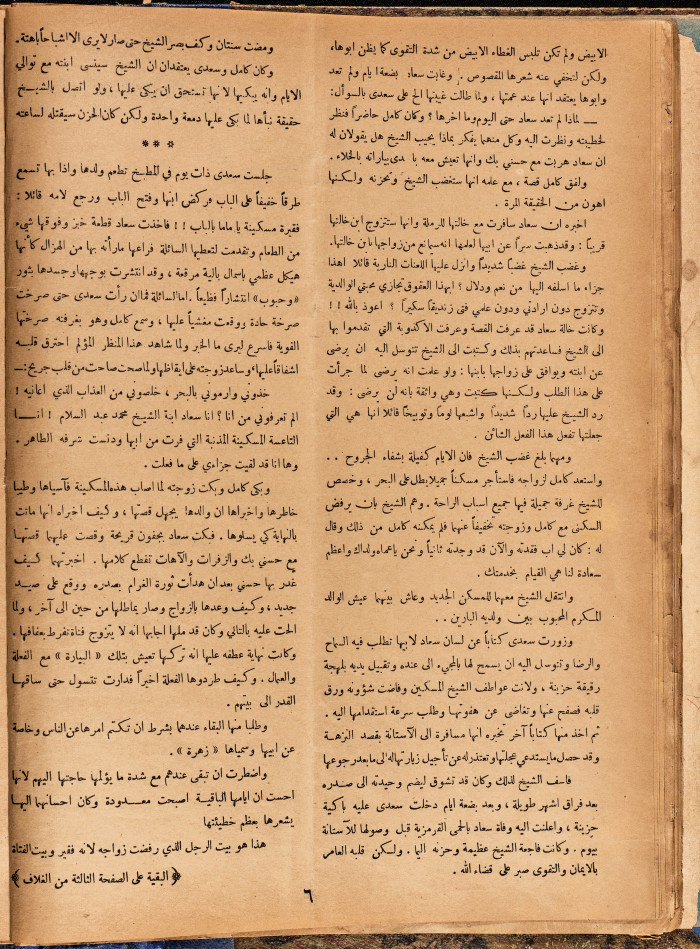 الابيض ولم تكن تلبس الغطاء الابيض من شدة التقوى كما يظن ابوها،
ولكن لتخفي عنه شعرها المقصوص. وغابت سعاد بضعة ايام ولم تعد
وابوها يعتقد انها عند عمتها، ولما طالت غيبتها الح على سعدى بالسؤال:
— لماذا لم تعد سعاد حتى اليوم وما اخرها؟ وكان كامل حاضراً فنظر
لخطيبته ونظرت اليه وكل منهما يفكر بماذا يجيب الشيخ هل يقولان له
ان سعاد هربت مع حسني بك وانها تعيش معه با دى بياراته بالخلاء.
ولفق كامل قصة، مع علمه انها ستغضب الشيخ وتحزنه ولكنها
اهون من الحقيقة المرة.
اخبره ان سعاد سافرت مع خالتها للرملة وانها ستتزوج ابن خالتها
قريباً: وقد ذهبت سراً عن ابيها لعلمها انه سيمانع من زواجها بابن خالتها.
وغضب الشيخ غضباً شديداً وانزل عليها اللعنات النارية قائلا اهذا
جزاء ما اسلفه اليها من نعم ودلال؟ ابهذا العقوق تجازي محبتي الوالدية
وتتزوج دون ارادتي ودون علمي فتى زنديقاً سكيراً؟ اعوذ بالله!!
وكانت خالة سعاد قد عرفت القصة وعرفت الاكذوبة التي تقدموا بها
الى الشيخ فساعدتهم بذلك وكتبت الى الشيخ تتوسل اليه ان يرضى
عن ابنته ويوافق على زواجها بابنها: ولو علمت انه يرضى لما جرأت
على هذا الطلب ولكنها كتبت وهي واثقة بانه لن يرضى: وقد
رد الشيخ عليها رداً شديداً واشبعها لوماً وتوبيخاً قائلا انها هي التي
جعلتها تفعل هذا الفعل الشائن.
ومهما بلغ غضب الشيخ فان الايام كفيلة بشفاء الجروح..
واستعد كامل لزواجه فاستأجر مسكناً جميلا يطل على البحر، وخصص
للشيخ غرفة جميلة فيها جميع اسباب الراحة. وهم الشيخ بان يرفض
السكنى مع كامل وزوجته تخفيفاً عنهما فلم يمكنه كامل من ذلك وقال
له: كان لي اب فقدته والآن قد وجدته ثانياً ونحن ياعماه ولداك واعظم
سعادة لنا هي القيام بخدمتك.
وانتقل الشيخ معهما للمسكن الجديد وعاش بينهما عيش الوالد
المسكرم المحبوب بين ولديه البارين..
وزورت سعدى كتاباً عن لسان سعاد لابيها تطلب فيه السماح
والرضا وتتوسل اليه ان يسمح لها بالمجيء الى عنده وتقبيل يديه بلهجة
رقيقة حزينة، ولانت عواطف الشيخ المسكين وفاضت شؤونه ورق
قلبه فصفح عنها وتغاضى عن هفوتها وطلب سرعة استقدامها اليه.
ثم اخذ منها كتاباً آخر تخبره انها مسافرة الى الآستانة بقصد النزهة
وقد حصل ما يستدعي عجلتها وتعتذر له عن تأجيل زيارتها له الى ما بعد رجوعها
فاسف الشيخ لذلك وكان قد تشوق ليضم وحيدته الى صدره
بعد فراق اشهر طويلة، وبعد بضعة ايام دخلت سعدى عليه باكية
حزينة، واعلنت اليه وفاة سعاد بالحمى القرمزية قبل وصولها للآستانة
بيوم. وكانت فاجعة الشيخ عظيمة وحزنه اليما. ولكن قلبه العامر
بالايمان والتقوى صبر على قضاء الله.
ومضت سنتان وكف بصر الشيخ حتى صار لايرى الا اشباحاً باهتة.
وكان كامل وسعدى يعتقدان ان الشيخ سينسى ابنته مع توالي
الايام وانه يبكيها لانها تستحق ان يبكى عليها، ولو اتصل بالشيخ
حقيقة نبأها لما بكى عليها دمعة واحدة ولكن كان الحزن سيقتله لساعته
* * *
جلست سعدى ذات يوم في المطبخ تطعم ولدها واذا بها تسمع
طرقاً خفيفاً على الباب فركض ابنها وفتح الباب ورجع لامه قائلا:
فقيرة مسكينة يا ماما بالباب!! فاخذت سعاد قطعة خبز وفوقها شيء
من الطعام وتقدمت لتعطيها السائلة فراعها مارأته بها من الهزال كأنها
هيكل عظمي باسمال بالية مرقعة، وقد انتشرت بوجهها وجسدها بثور
«وحبوب» انتشاراً فظيعاً. اما السائلة فما ان رأت سعدى حتى صرخت
صرخة حادة ووقعت مغشياً عليها، وسمع كامل وهو بغرفته صرختها
القوية فاسرع ليرى ما الخبر ولما شاهد هذا المنظر المؤلم احترق قلبه
اشفاقاً عليها، وساعد زوجته على ايقاظها ولما صحت صاحت من قلب جريح: —
خذوني وارموني بالبحر، خلصوني من العذاب الذي اعانيه!
الم تعرفوني من انا؟ انا سعاد ابنة الشيخ محمد عبد السلام! انا
التاعسة المسكينة المذنبة التي فرت من ابيها ودنست شرفه الطاهر.
وها انا قد لقيت جزاءي على ما فعلت.
وبكى كامل وبكت زوجته لما اصاب هذه المسكينة فآسياها وطيبا
خاطرها واخبراها ان والدها يجهل قصتها، وكيف اخبراه انها ماتت
بالنهاية كي يسلوها. فبكت سعاد بجفون قريحة وقصت عليهما قصتها
مع حسني بك والزفرات والآهات تقطع كلامها. اخبرتهما كيف
غدر بها حسني بعد ان هدأت ثورة الغرام بصدره ووقع على صيد
جديد، وكيف وعدها بالزواج وصار يماطلها من حين الى آخر، ولما
الحت عليه بالتالي وكان قد ملها اجابها انه لا يتزوج فتاة تفرط بعفافها.
وكانت نهاية عطفه عليها انه تركها تعيش بتلك «البيارة» مع الفعلة
والعمال. وكيف طردوها الفعلة اخيراً فدارت تتسول حتى ساقها
القدر الى بيتهم.
وطلبا منها البقاء عندهما بشرط ان تكتم امرها عن الناس وخاصة
عن ابيها وسمياها «زهرة».
واضطرت ان تبقى عندهم مع شدة ما يؤلمها حاجتها اليهم لانها
احست ان ايامها الباقية اصبحت معدودة وكان احسانهما اليها
يشعرها بعظم خطيئتها
هذا هو بيت الرجل الذي رفضت زواجه لانه فقير وبيت الفتاة
﴿البقية على الصفحة الثالثة من الغلاف﴾
٦